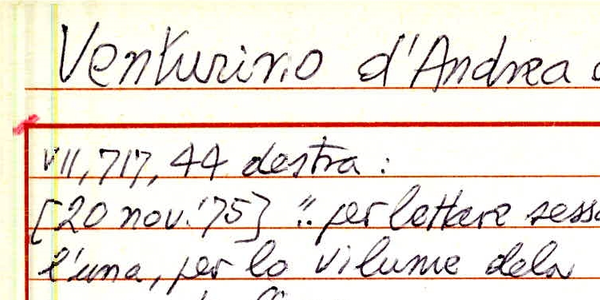 Venturino d'Andrea
VII, 717, 44 destra :
[20 nov. '75] ".. per lettare
l'una, per lo vilume dela